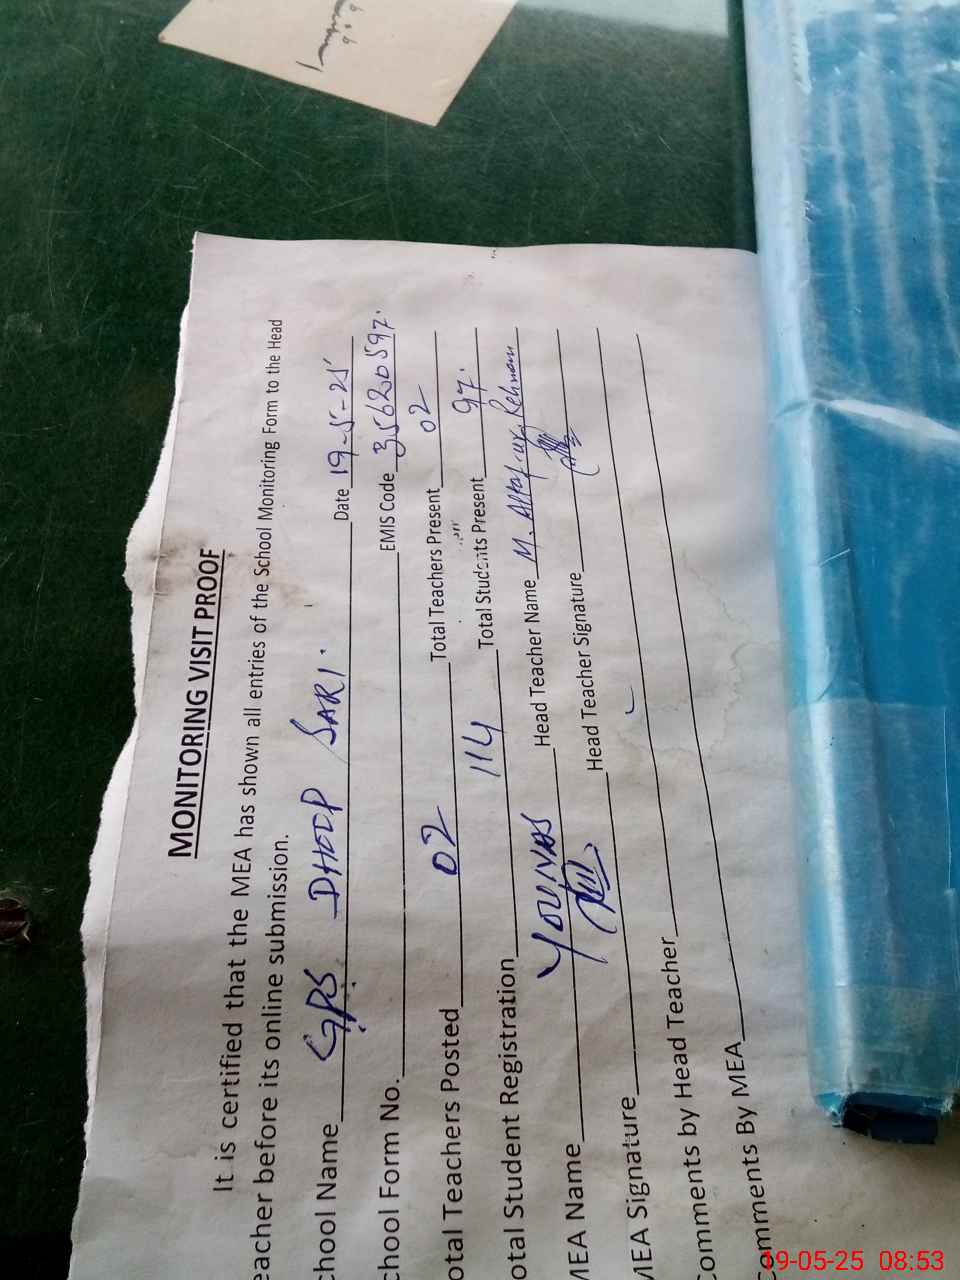 MONITORING VISIT PROOF
It is certified that the MEA has shown all entries of the School Monitoring Form to the Head
eacher before its online submission.
chool Name GPS DHOOP SARI. Date 19-5-25
chool Form No. EMIS Code 35620597.
otal Teachers Posted 02 Total Teachers Present 02
otal Student Registration 114 Total Students Present 97.
MEA Name YOUNAS Head Teacher Name M. Altaf-ur-Rehman
MEA Signature Head Teacher Signature
Comments by Head Teacher
Comments By MEA
19-05-25 08:53